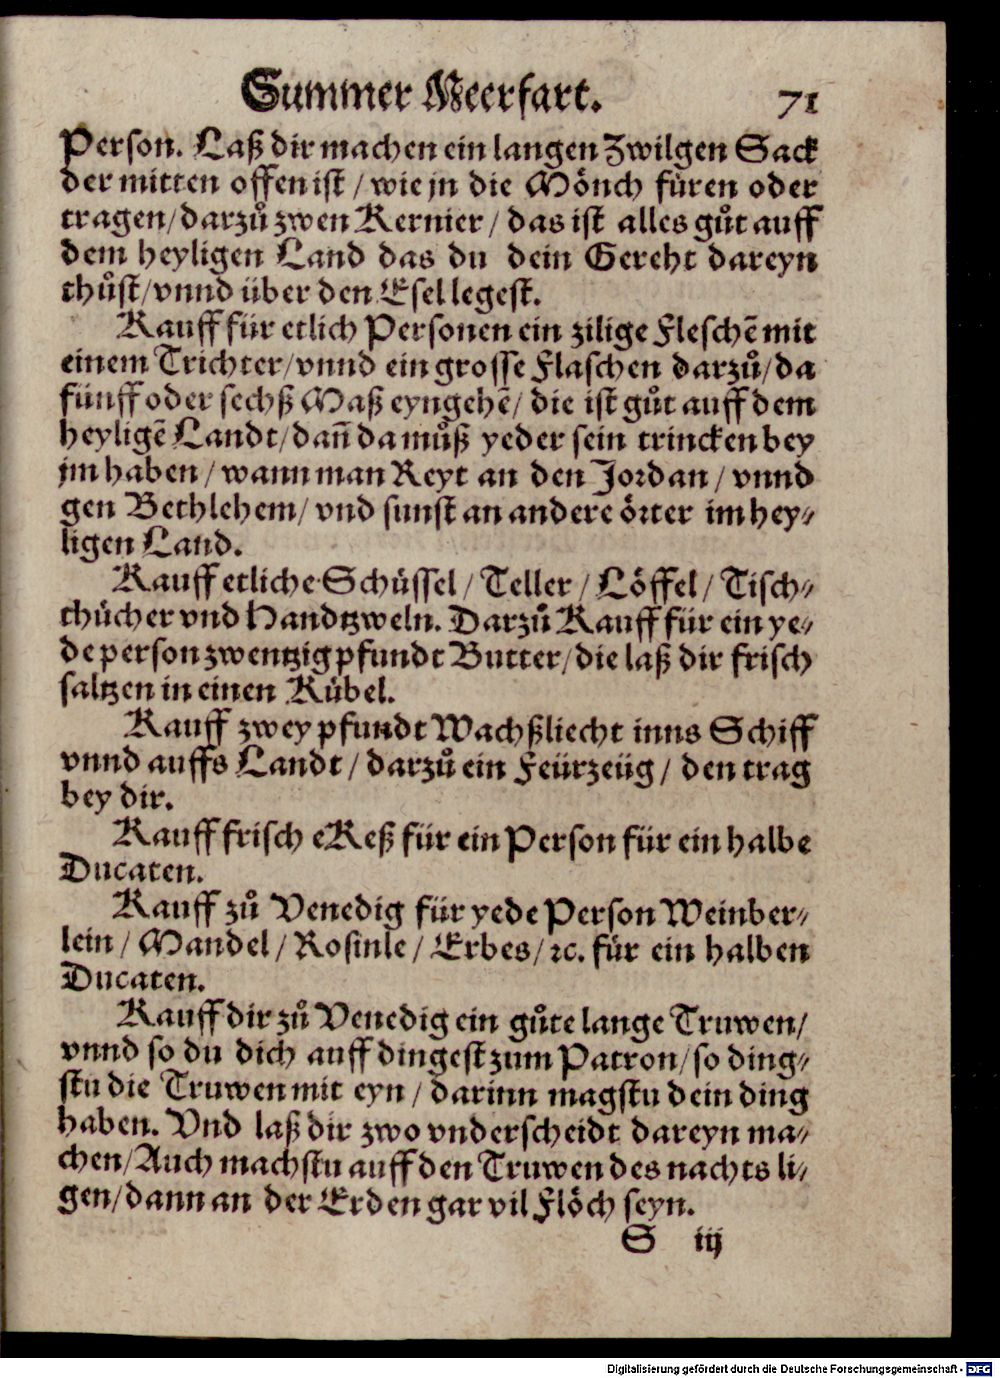 Summer Meerfart. 71
Person. Laß dir machen ein langen Zwilgen Sack
der mitten offen ist / wie jn die Mönch füren oder
tragen / darzů zwen Kernier / das ist alles gůt auff
dem heyligen Land das du dein Gereht dareyn
thůst / vnnd über den Esel legest.
Kauff für etlich Personen ein zilige Fleschẽ mit
einem Trichter / vnnd ein grosse Flaschen darzů / da
fünff oder sechß Maß eyngehẽ / die ist gůt auff dem
heyligẽ Landt / dañ da můß yeder sein trincken bey
jm haben / wann man Reyt an den Jordan / vnnd
gen Bethlehem / vnd sunst an andere örter im hey⸗
ligen Land.
Kauff etliche Schüssel / Teller / Löffel / Tisch⸗
thücher vnd Handtzweln. Darzů Kauff für ein ye⸗
de person zwentzig pfundt Butter / die laß dir frisch
saltzen in einen Kübel.
Kauff zwey pfundt Wachßliecht inns Schiff
vnnd auffs Landt / darzů ein Feürzeüg / den trag
bey dir.
Kauff frisch eKeß für ein Person für ein halbe
Ducaten.
Kauff zů Venedig für yede Person Weinber⸗
lein / Mandel / Rosinle / Erbes / ꝛc. für ein halben
Ducaten.
Kauff dir zů Venedig ein gůte lange Truwen /
vnnd so du dich auff dingest zum Patron / so ding⸗
stu die Truwen mit eyn / darinn magstu dein ding
haben. Vnd laß dir zwo vnderscheidt dareyn ma⸗
chen / Auch machstu auff den Truwen des nachts li⸗
gen / dann an der Erden gar vil Flöch seyn.
S iij
Digitalisierung gefördert durch die Deutsche Forschungsgemeinschaft - DFG